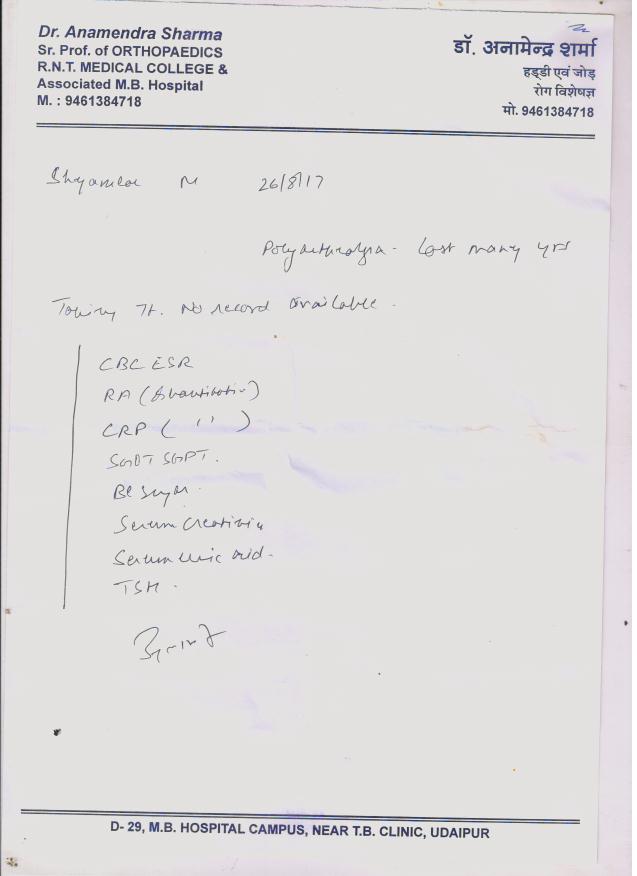 Dr. Anamendra Sharma
Sr. Prof. of ORTHOPAEDICS
R.N.T. MEDICAL COLLEGE &
Associated M.B. Hospital
M. : 9461384718
डॉ. अनामेन्द्र शर्मा
हड्डी एवं जोड़
रोग विशेषज्ञ
मो. 9461384718
M 26/8/17
Polyarthralgia - last many yrs
Taking Tt. No record available.
CBC ESR
RA (Quantitative)
CRP ( '' )
SGOT SGPT.
Bl sugar.
Serum Creatinin
Serum Uric acid.
TSH.
D- 29, M.B. HOSPITAL CAMPUS, NEAR T.B. CLINIC, UDAIPUR